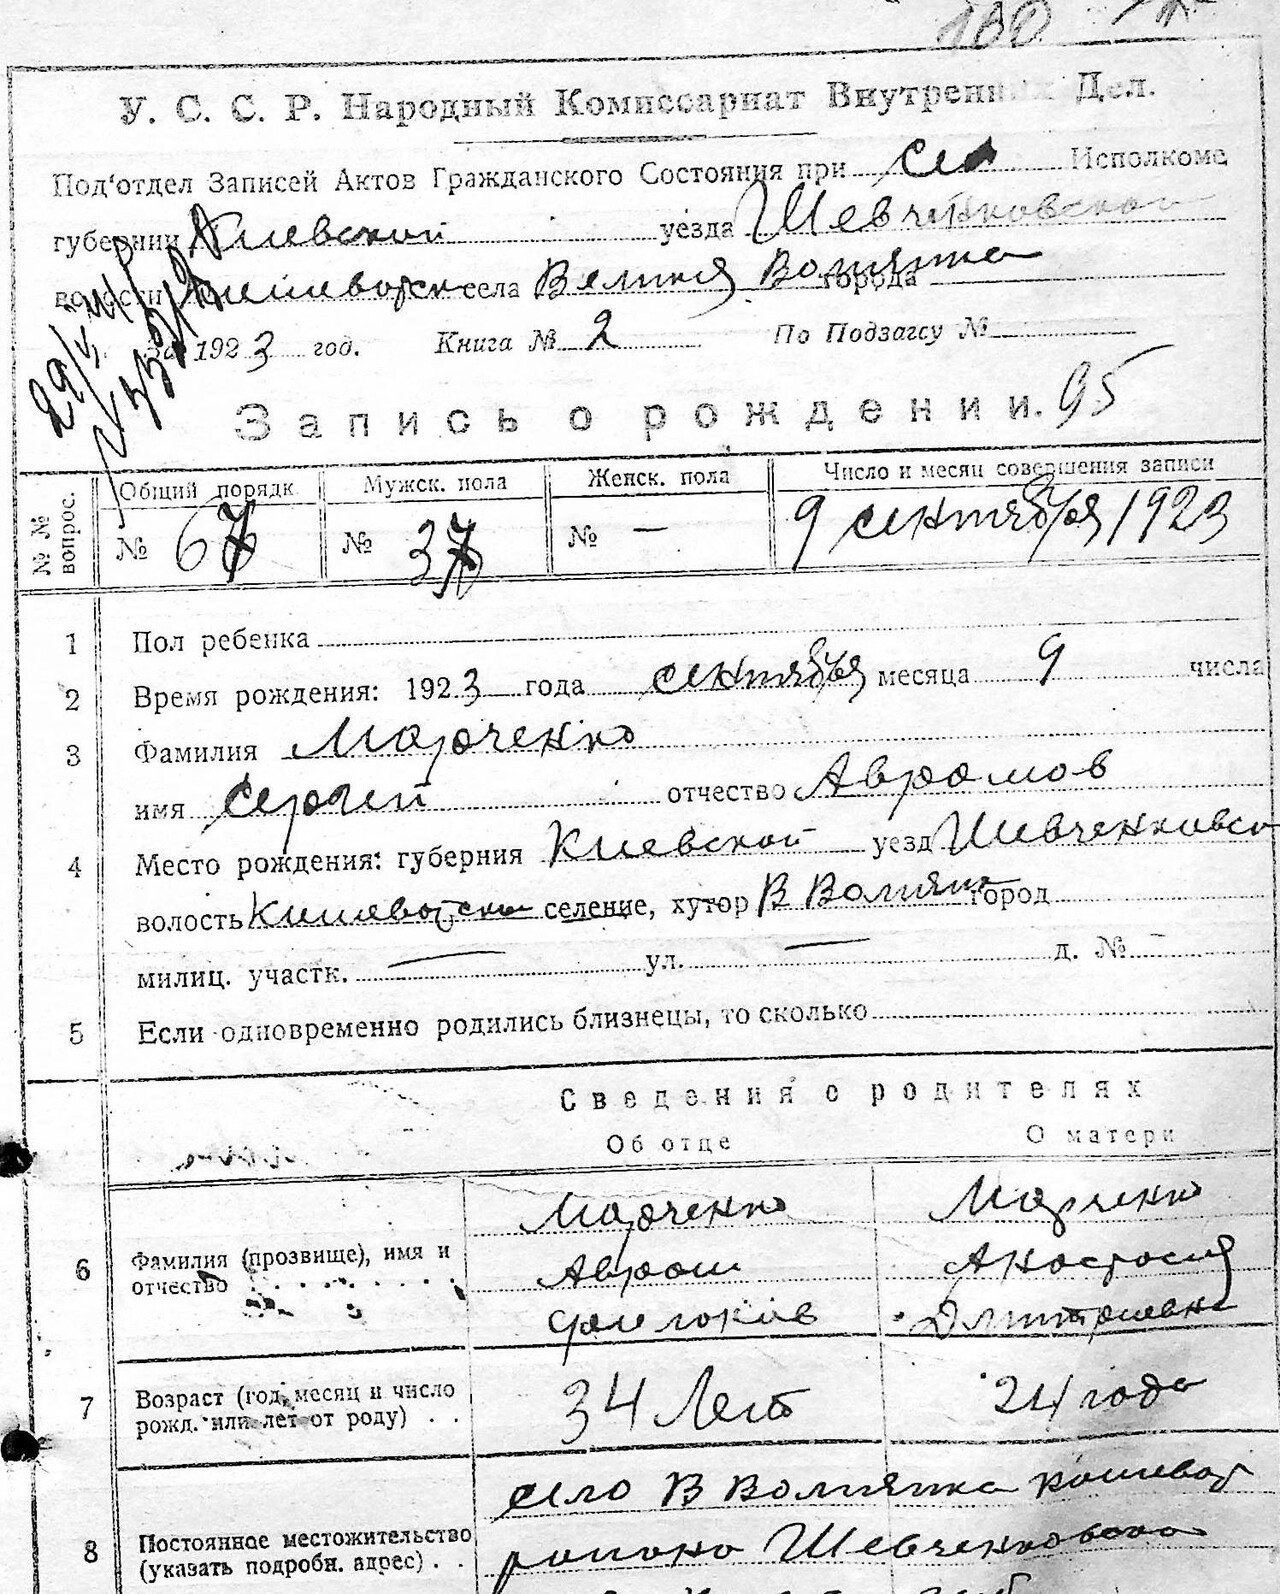 180
У. С. С. Р. Народный Комиссариат Внутренних Дел.
Под'отдел Записей Актов Гражданского Состояния при Сел Исполкоме
губернии Киевской уезда Шевченковской
волости села Велика Вомятка города
За 1923 год. Книга № 2 По Подзагсу №
Запись о рождении. 95
№ № вопрос. Общий порядк Мужск. пола Женск. пола Число и месяц совершения записи
№ 67 № 37 № — 9 сентября 1923
1 Пол ребенка
2 Время рождения: 1923 года сентября месяца 9 числа
3 Фамилия Марченко
имя Сергей отчество Аврамов
4 Место рождения: губерния Киевской уезд Шевченковско
волость селение, хутор В город
милиц. участк. — ул. — д. № –
5 Если одновременно родились близнецы, то сколько
Сведения о родителях
Об отце О матери
6 Фамилия (прозвище), имя и отчество
Марченко Марченко
Аврам Анастасия
Дмитриевна
7 Возраст (год, месяц и число рожд. или лет от роду) . .
34 лет 24 года
8 Постоянное местожительство (указать подробн. адрес) . .
село В
района Шевченковского